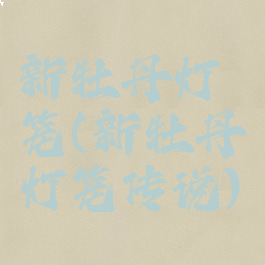 新牡丹灯
笼(新牡丹
灯笼传说)